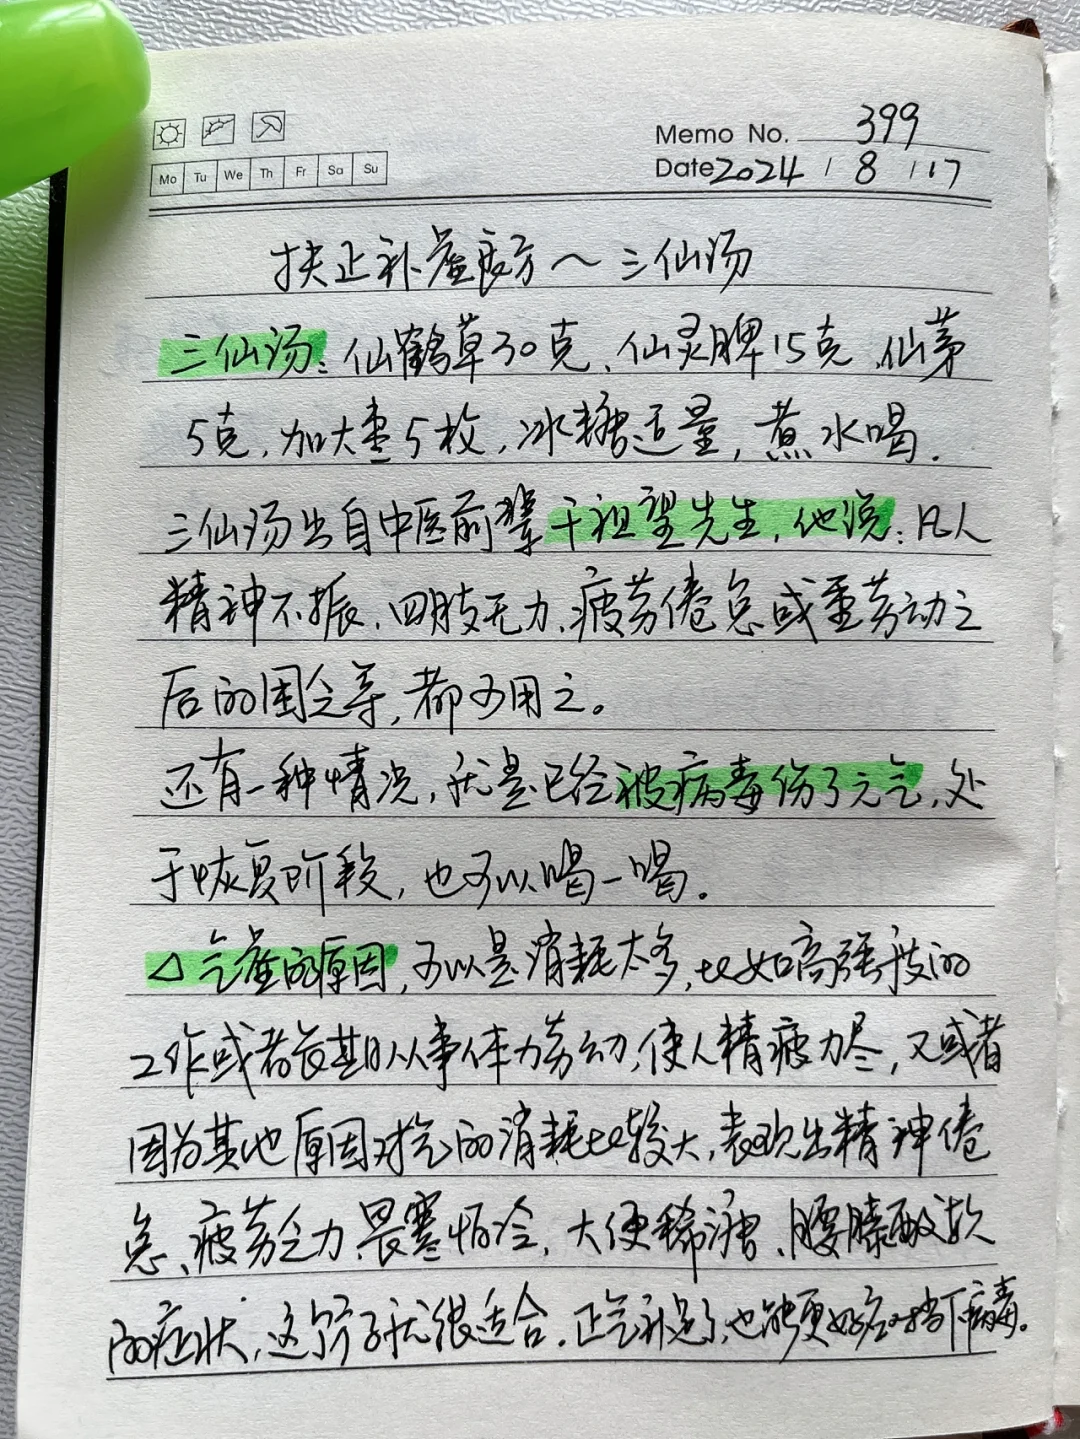 Memo No. 399
Mo Tu We Th Fr Sa Su
Date 2024 / 8 / 17
扶正补虚良方~三仙汤
三仙汤：仙鹤草30克、仙灵脾15克、仙茅
5克，加大枣5枚，冰糖适量，煮水喝.
三仙汤出自中医前辈干祖望先生，他说：凡人
精神不振、四肢无力、疲劳倦怠或重劳动之
后的困乏等，都可用之。
还有一种情况，就是已经被病毒伤了元气，处
于恢复阶段，也可以喝一喝.
△气虚的原因，可以是消耗太多，比如高强度的
工作或者长期从事体力劳动，使人精疲力尽，又或者
因为其他原因对气的消耗比较大，表现出精神倦
怠、疲劳乏力、畏寒怕冷，大便稀溏、腰膝酸软
的症状，这方子就很适合.正气补足了，也能更好应对当下病毒。